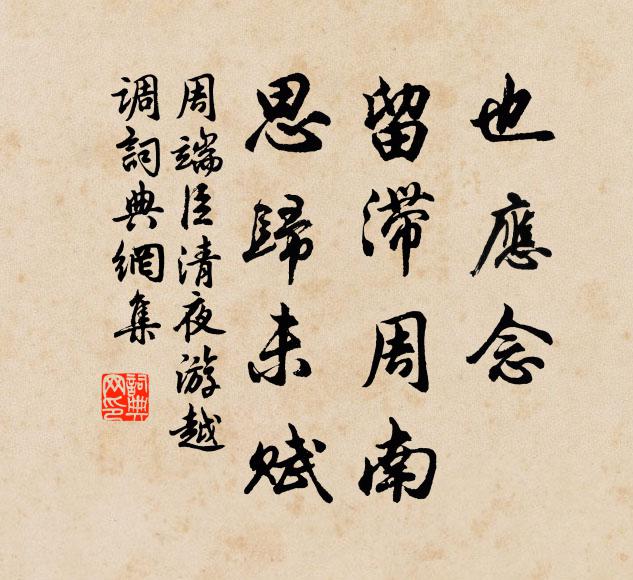 也應念
留滯周南
思歸未賦
周端臣清夜游越
调詞典網集
詞典
网印